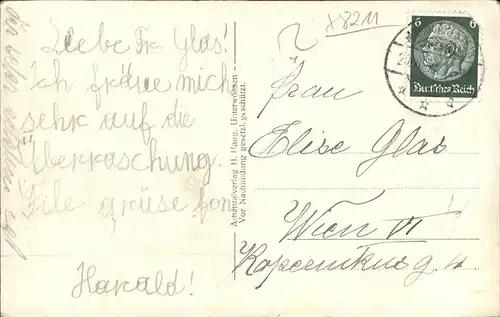 Liebe Fr. Glas!
Ich fräue mich
sehr auf die
Überraschung.
File grüse fon
Harald!
Achentalverlag H. Haug, Unterwössen
Vor Nachbildung gesetzl. geschützt.
x8211
6 6
Deutsches Reich
Frau
Elise Glas
Wien VI
Kopernikusg.